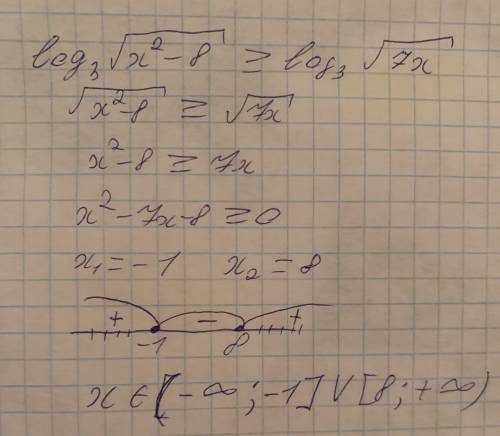 log₃√(x²-8) ≥ log₃ √(7x)
√(x²-8) ≥ √(7x)
x²-8 ≥ 7x
x²-7x-8 ≥ 0
x₁ = -1 x₂ = 8
+ - +
-1 8
x ∈ [-∞; -1] V [8; +∞)